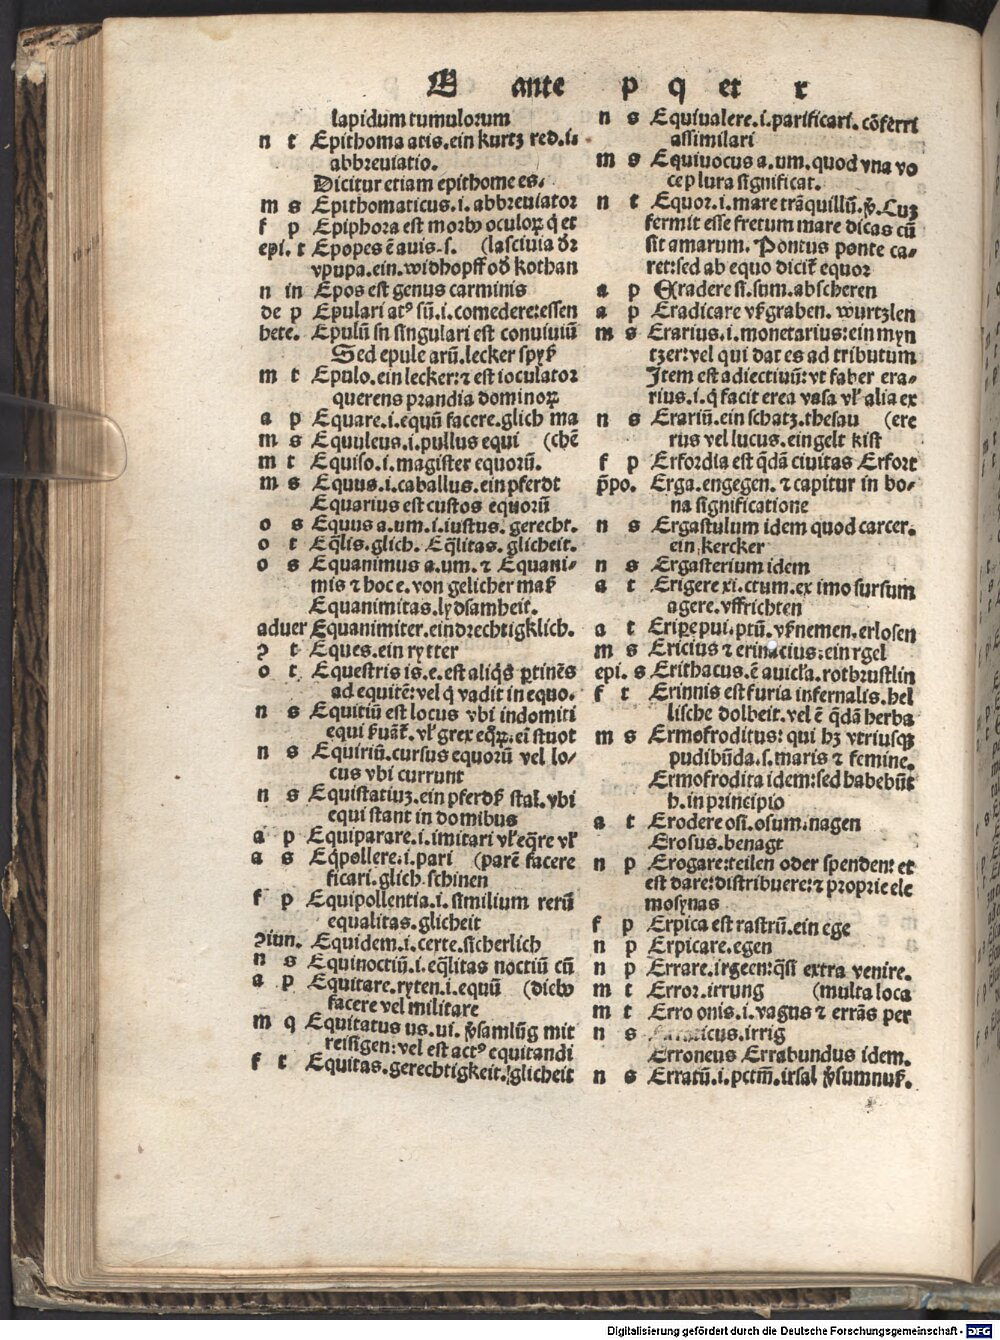 E ante p q et r
lapidum tumulorum
n t Epithoma atis. ein kurtz red. is
abbreuiatio.
Dicitur etiam epithome es.
m s Epithomaticus. i. abbreuiator
f p Epiphora est morbꝰ oculoꝝ q̇ et
epi. t Epopes ē auis. s. (lasciuia dr̄
vpupa. ein. widhopff od̕ kothan
n in Epos est genus carminis
de p Epulari atꝰ sū. i. comedere: essen
hete. Epulū in singulari est conuiuiū
Sed epule arū. lecker spyß
m t Epulo. ein lecker: ⁊ est ioculator
querens prandia dominoꝝ
a p Equare. i. equū facere. glich ma
m s Equuleus. i. pullus equi (chē
m t Equiso. i. magister equorū.
m s Equus. i. caballus. ein pferdt
Equarius est custos equorū
o s Equus a. um. i. iustus. gerecht.
o t Eq̄lis. glich. Eq̄litas. glicheit.
o s Equanimus a. um. ⁊ Equani-
mis ⁊ hoc e. von gelicher maß
Equanimitas. lydsamheit.
aduer Equanimiter. eindrechtigklich.
ꝯ t Eques. ein rytter
o t Equestris is. e. est aliq̇s ꝑtinēs
ad equitē: vel q̇ vadit in equo.
n s Equitiū est locus vbi indomiti
equi
n s Equiriū. cursus equorū vel lo-
cus vbi currunt
n s Equistatiuꝫ. ein pferdß stal. vbi
equi stant in domibus
a p Equiparare. i. imitari vl̕ eq̄re vl̕
a s Eq̇pollere. i. pari (parē facere
ficari. glich schinen
f p Equipollentia. i. similium rerū
equalitas. glicheit
ꝯiun. Equidem. i. certe. sicherlich
n s Equinoctiū. i. eq̄litas noctiū cū
a p Equitare. ryten. i. equū (diebꝰ
facere vel militare
m q Equitatus us. ui. v̕samlūg mit
reisigen: vel est actꝰ equitandi
f t Equitas. gerechtigkeit. glicheit
n s Equiualere. i. parificari. cōferri
assimilari
m s Equiuocus a. um. quod vna vo
ce plura significat.
n t Equor. i. mare trāquillū. v̕. Cuꝫ
fermit esse fretum mare dicas cū
sit amarum. Pontus ponte ca-
ret: sed ab equo dicit̕ equor
a p Eradere si. sum. abscheren
a p Eradicare vßgraben. wurtzlen
m s Erarius. i. monetarius: ein myn
tzer: vel qui dat es ad tributum
Item est adiectiuū: vt faber era-
rius. i. q̇ facit erea vasa vl̕ alia ex
n s Erariū. ein schatz. thesau (ere
rus vel lucus. ein gelt kist
f p Erfordia est q̄dā ciuitas Erfort
p̄po. Erga. engegen. ⁊ capitur in bo-
na significatione
n s Ergastulum idem quod carcer.
ein kercker
n s Ergasterium idem
a t Erigere xi. ctum. ex imo sursum
agere. vffrichten
a t Eripere pui. ptū. vßnemen. erlosen
m s Ericius ⁊ erinacius: ein ygel
epi. s Erithacus. ē auicl̕a. rotbrustlin
f t Erinnis est furia infernalis. hel
lische dolheit. vel ē q̄dā herba
m s Ermofroditus: qui hꝫ vtriusqꝫ
pudibūda. s. maris ⁊ femine.
Ermofrodita idem: sed habebūt
h. in principio
a t Erodere osi. osum. nagen
Erosus. benagt
n p Erogare: teilen oder spenden: et
est dare: distribuere: ⁊ proprie ele
mosynas
f p Erpica est rastrū. ein ege
n p Erpicare. egen
n p Errare. irgeen: q̄si extra venire.
m t Error. irrung (multa loca
m t Erro onis. i. vagus ⁊ errās per
n s Erraticus. irrig
Erroneus Errabundus idem.
n s Erratū. i. pctm̄. irsal v̕sumnuß.
Digitalisierung gefördert durch die Deutsche Forschungsgemeinschaft - DFG